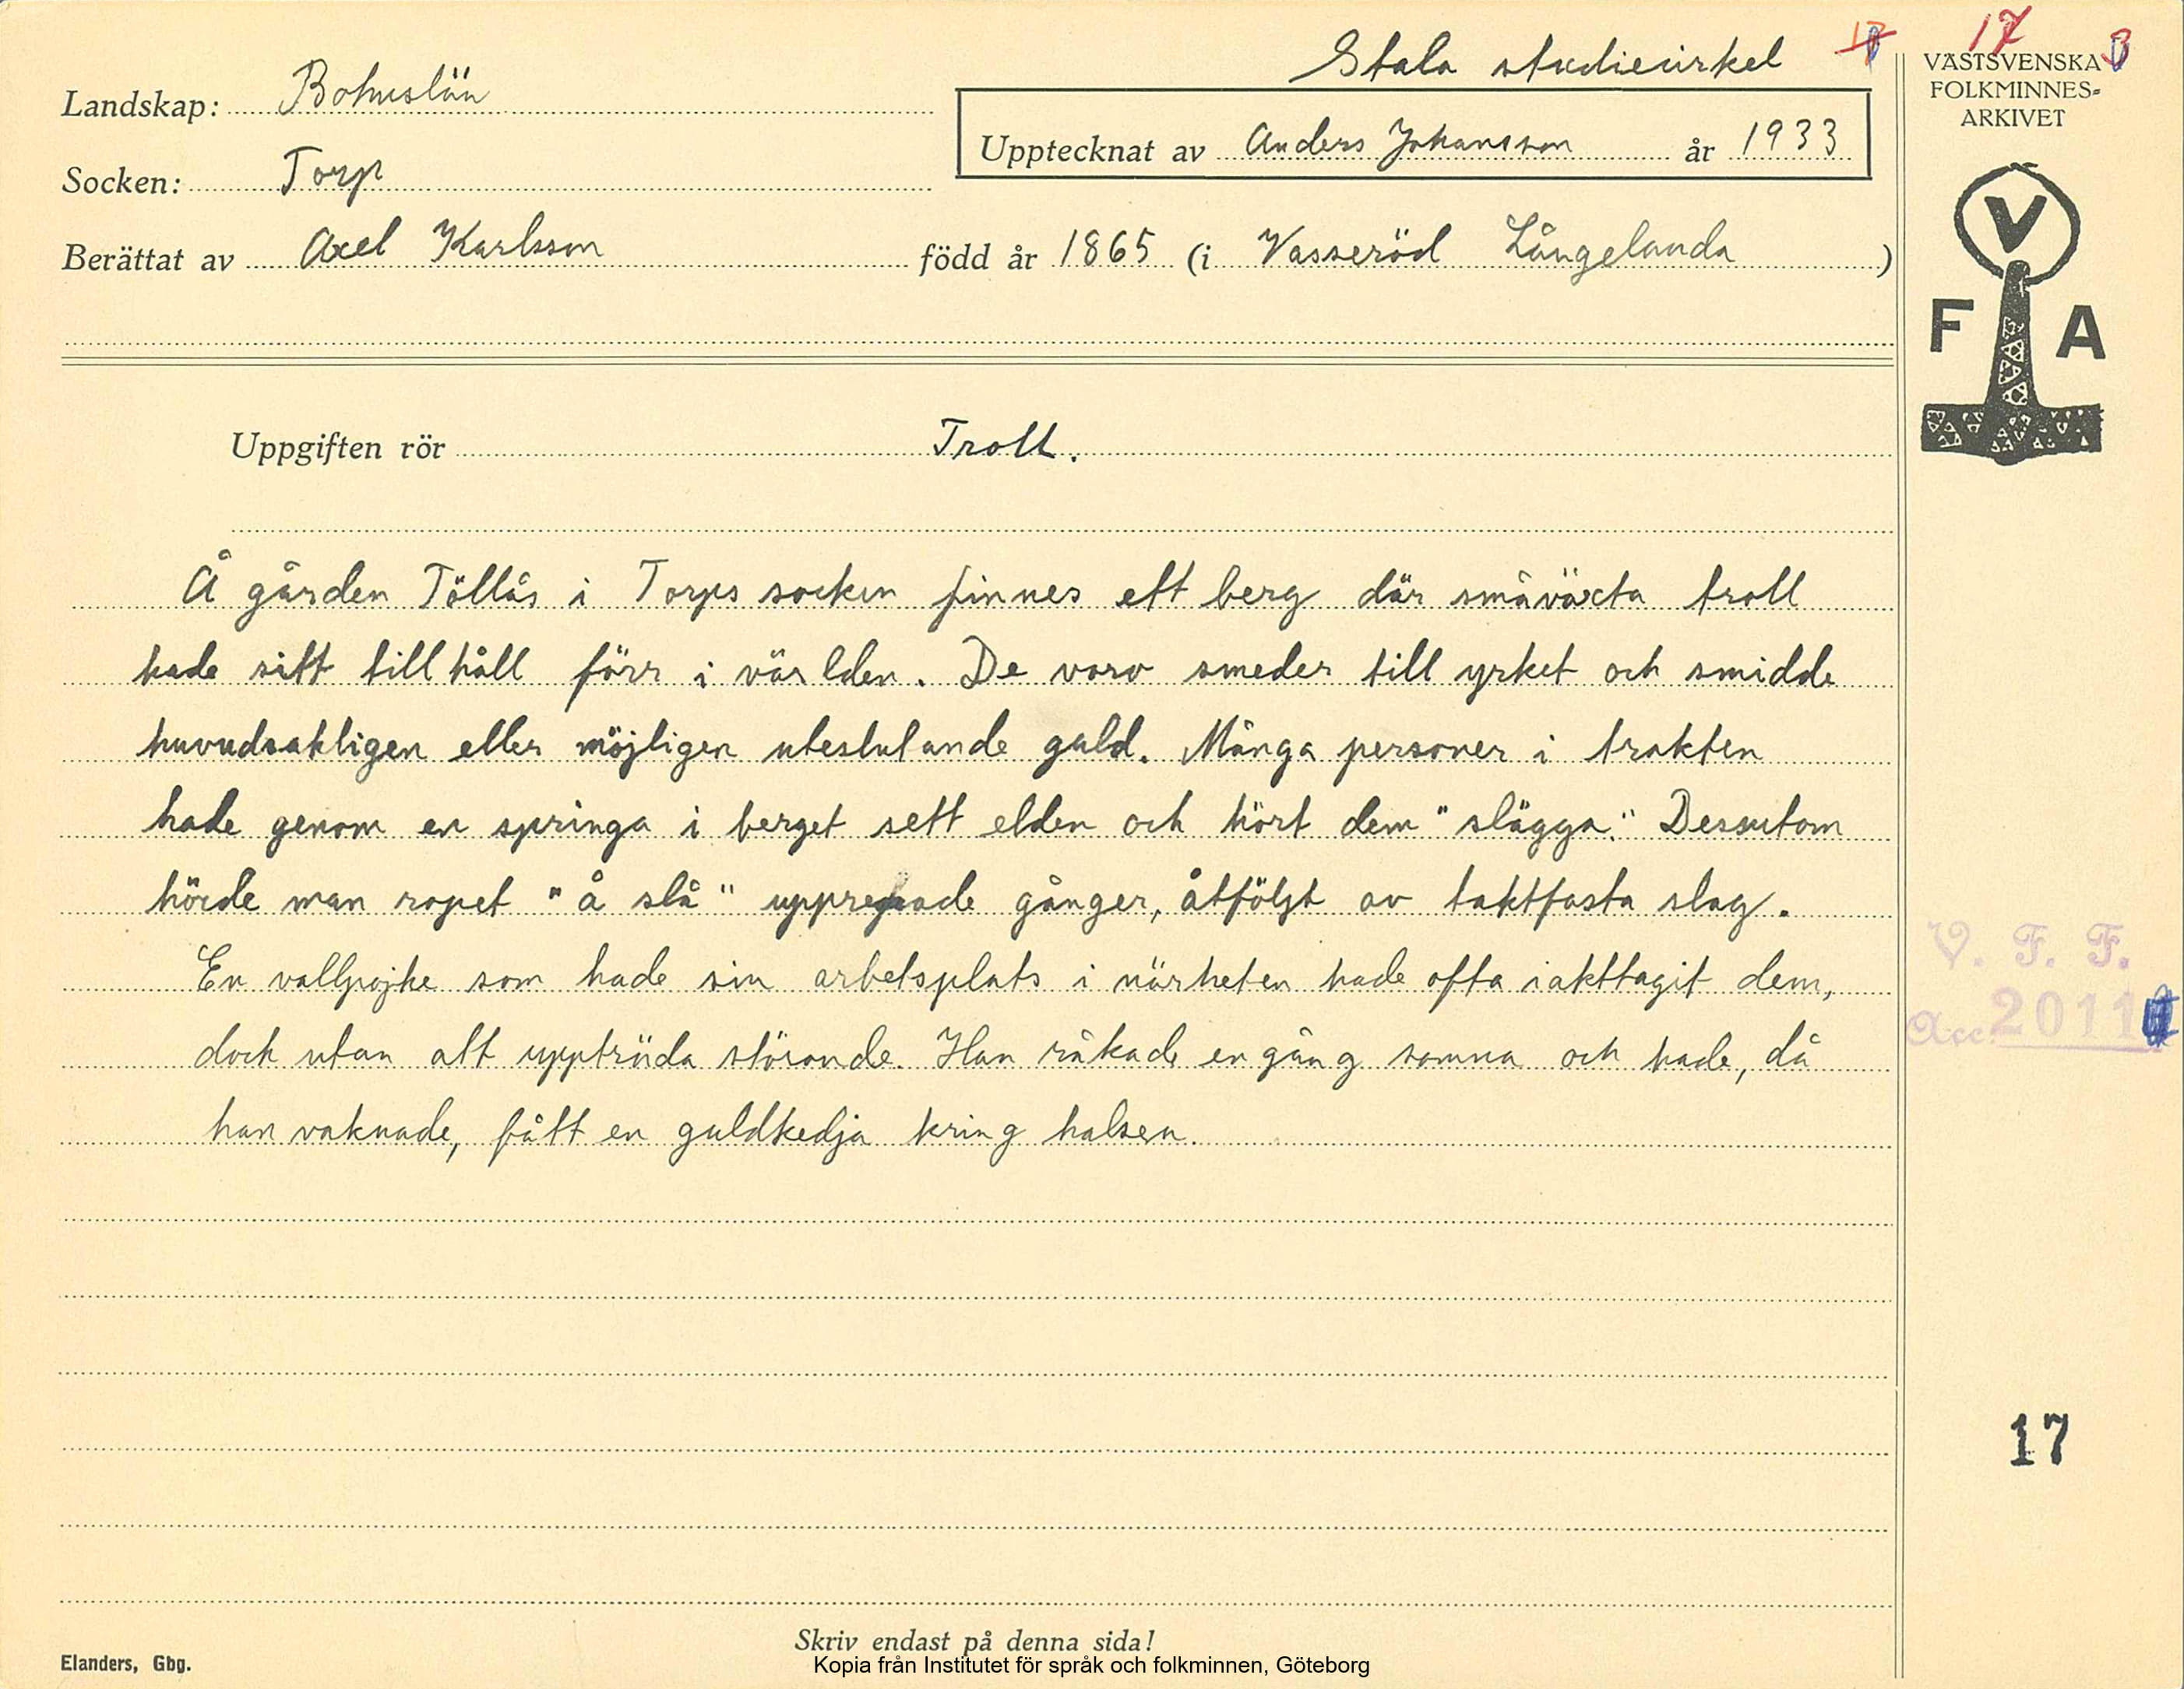 Stala studiecirkel 17 3
Landskap: Bohuslän
Upptecknat av Anders Johansson år 1933
Socken: Torp
Berättat av Axel Karlsson född år 1865 (i Vasseröd Långelanda )
VÄSTSVENSKA
FOLKMINNES-
ARKIVET
V
F A
Uppgiften rör Troll.
Å gården Töllås i Torps socken finnes ett berg där småväxta troll
hade sitt tillhåll förr i världen. De voro smeder till yrket och smidde
huvudsakligen eller möjligen uteslutande guld. Många personer i trakten
hade genom en springa i berget sett elden och hört dem "slägga." Dessutom
hörde man ropet "å slå" upprepade gånger, åtföljt av taktfasta slag.
En vallpojke som hade sin arbetsplats i närheten hade ofta iakttagit dem,
doch utan att uppträda störande. Han råkade en gång somna och hade, då
han vaknade, fått en guldkedja kring halsen.
V. F. F.
Acc. 2011
17
Skriv endast på denna sida!
Elanders, Gbg.
Kopia från Institutet för språk och folkminnen, Göteborg